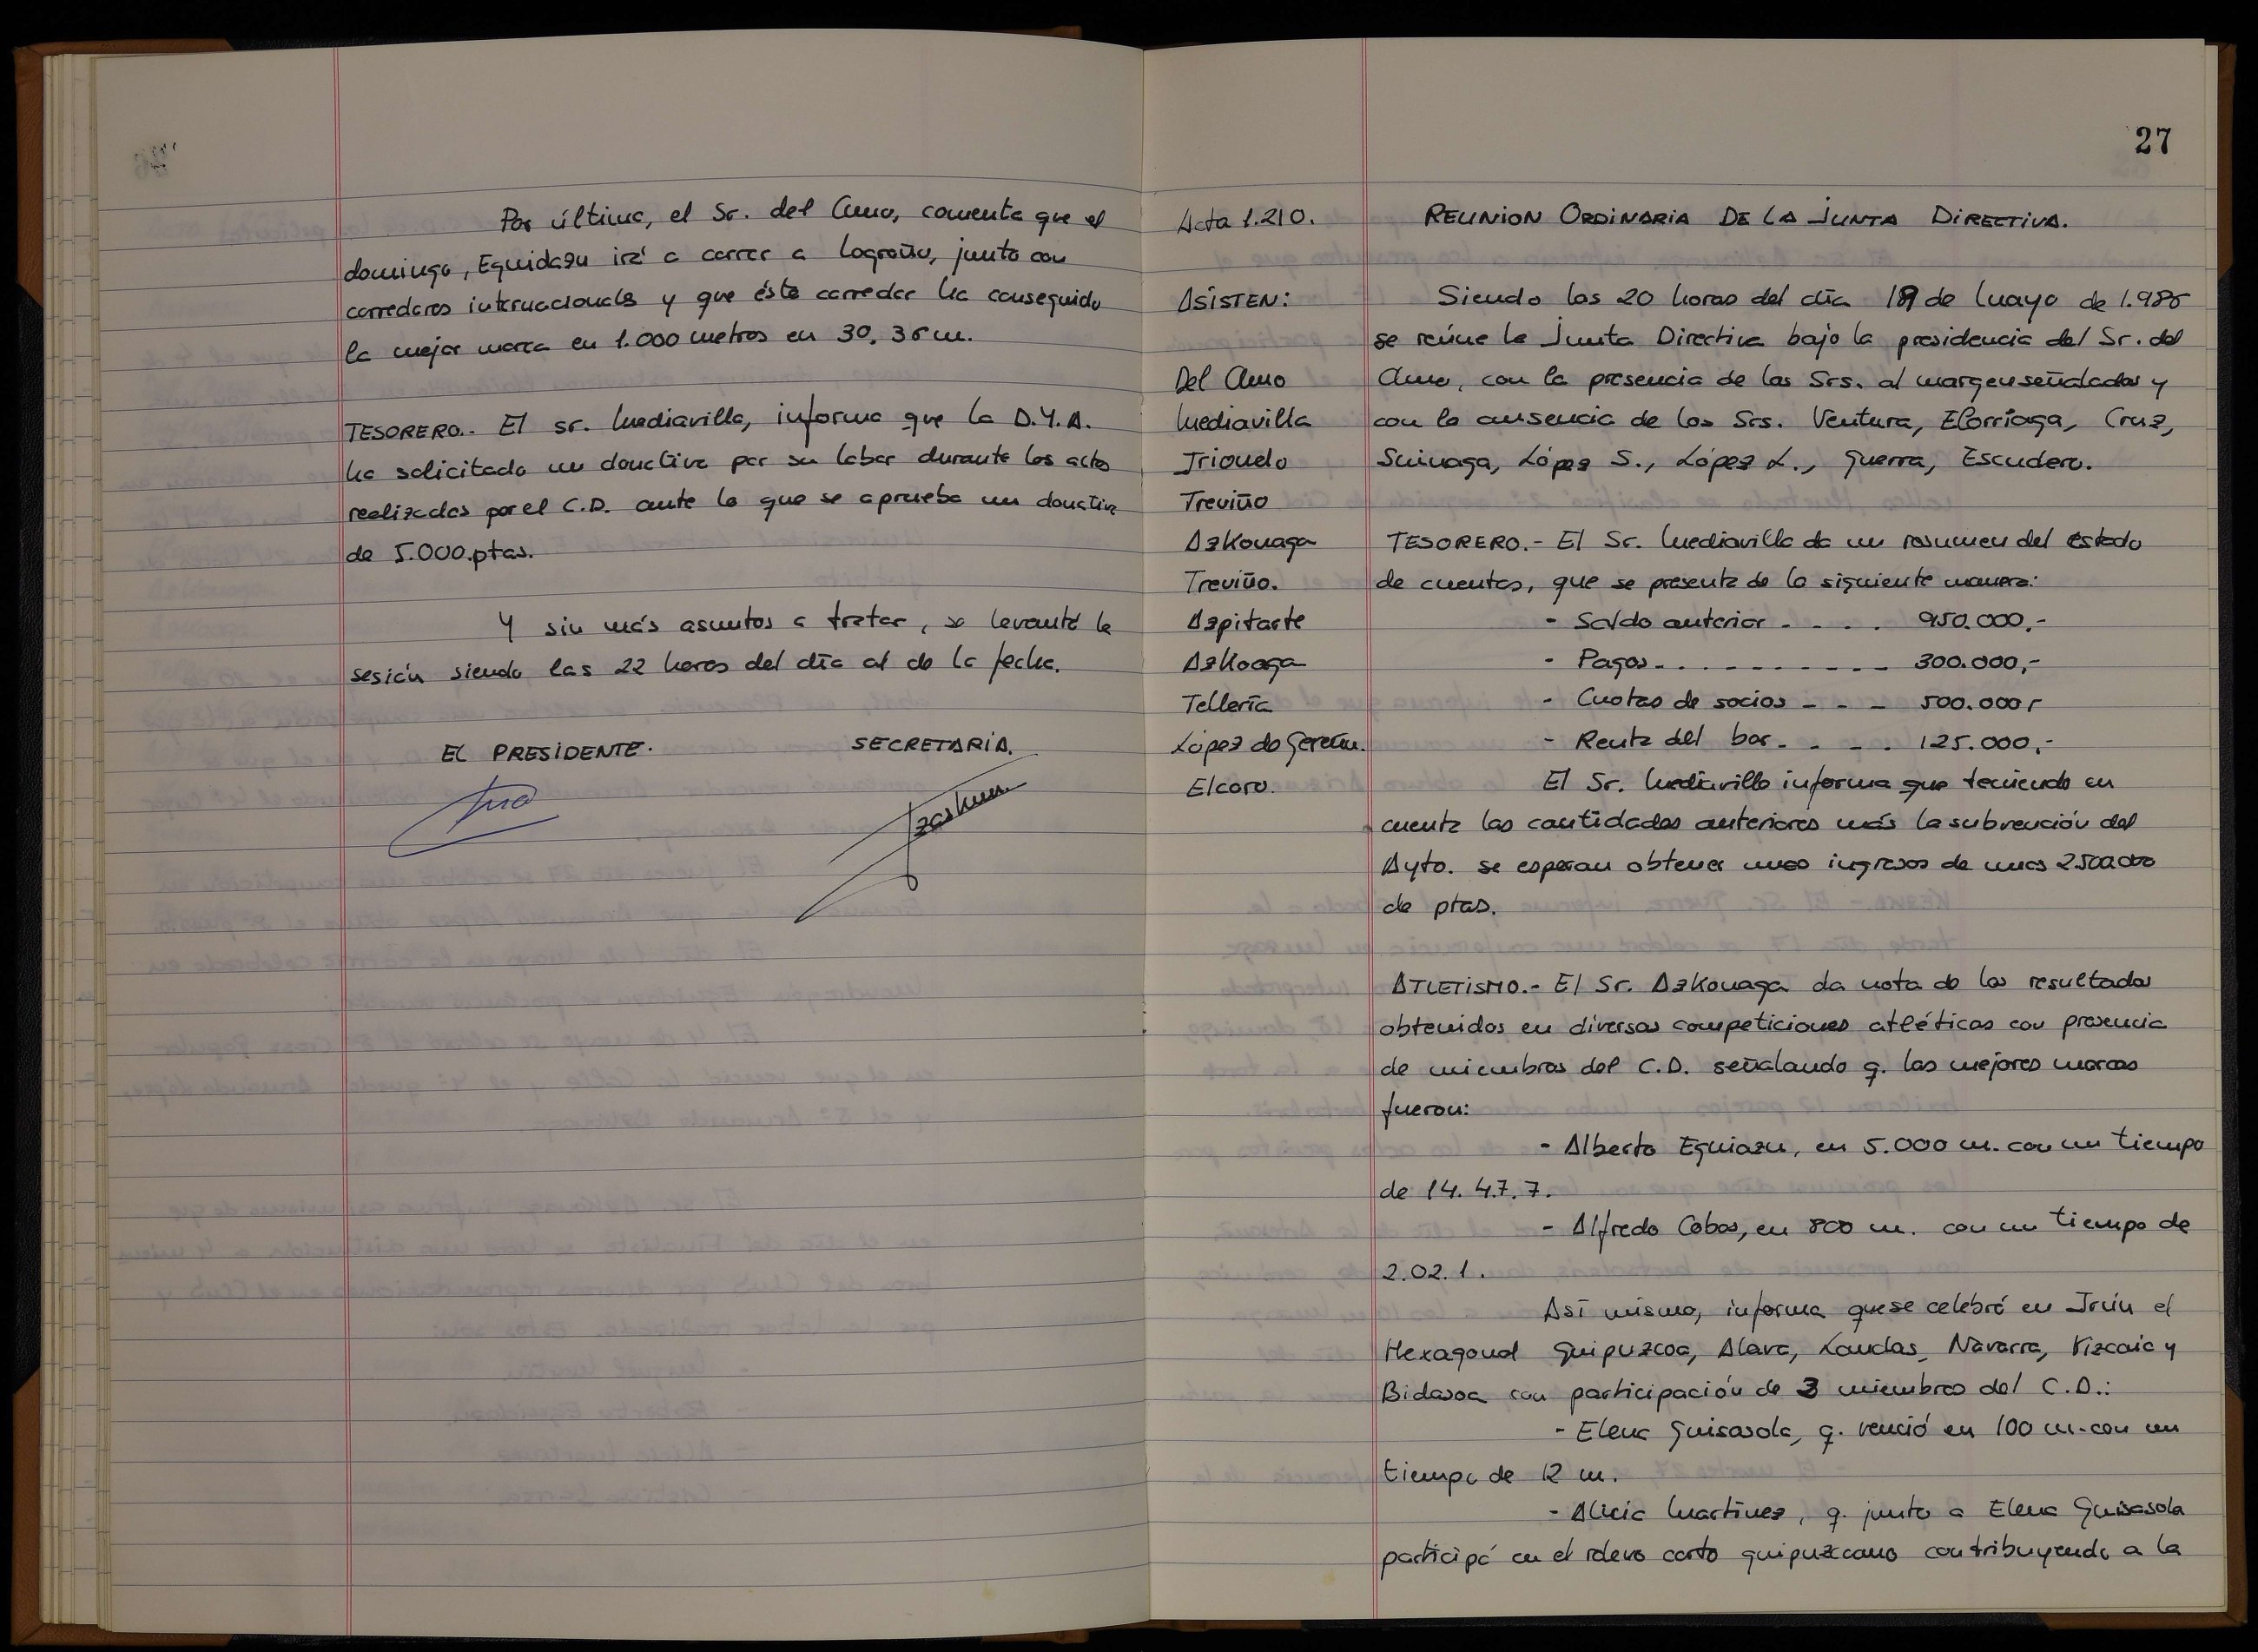 Por último, el Sr. del Amo, comenta que el
domingo, Eguidazu irá a correr a Logroño, junto con
corredores internacionales y que éste corredor ha conseguido
la mejor marca en 1.000 metros en 30, 36 m.
TESORERO.- El sr. Mediavilla, informa que la D.Y.A.
ha solicitado un donativo por su labor durante los actos
realizados por el C.D. ante lo que se aprueba un donativo
de 5.000.ptas.
Y sin más asuntos a tratar, se levantó la
sesión siendo las 22 horas del día al de la fecha.
EL PRESIDENTE.
SECRETARIA.
27
Acta 1.210.
ASISTEN:
Del Amo
Mediavilla
Trionelo
Treviño
Azkonaga
Treviño.
Azpitarte
Azkoaga
Tellería
López de Gereñu.
Elcoro.
REUNION ORDINARIA DE LA JUNTA DIRECTIVA.
Siendo las 20 horas del día 19 de Mayo de 1.986
se reúne la Junta Directiva bajo la presidencia del Sr. del
Amo, con la presencia de los Srs. al margen señalados y
con la ausencia de los Srs. Ventura, Elorriaga, Cruz,
Suinaga, López S., López L., Guerra, Escudero.
TESORERO.- El Sr. Mediavilla da un resumen del estado
de cuentas, que se presenta de la siguiente manera:
- Saldo anterior - - . . 950.000,-
- Pagos - . . . . . . - - - - 300.000,-
- Cuotas de socios - - - 500.000,-
- Renta del bar. - . - . 125.000,-
El Sr. Mediavilla informa que teniendo en
cuenta las cantidades anteriores más la subvención del
Ayto. se esperan obtener unos ingresos de unas 2.500.000
de ptas.
ATLETISMO.- El Sr. Azkonaga da nota de los resultados
obtenidos en diversas competiciones atléticas con presencia
de miembros del C.D. señalando q. las mejores marcas
fueron:
- Alberto Eguiazu, en 5.000 m. con un tiempo
de 14. 47. 7.
- Alfredo Cobos, en 800 m. con un tiempo de
2.02. 1.
Así mismo, informa que se celebró en Irún el
Hexagonal Guipuzcoa, Alava, Landas, Navarra, Vizcaia y
Bidasoa con participación de 3 miembros del C.D.:
- Elena Guisasola, q. venció en 100 m. con un
tiempo de 12 m.
- Alicia Martínez, q. junto a Elena Guisasola
participó en el relevo corto guipuzcoano contribuyendo a la